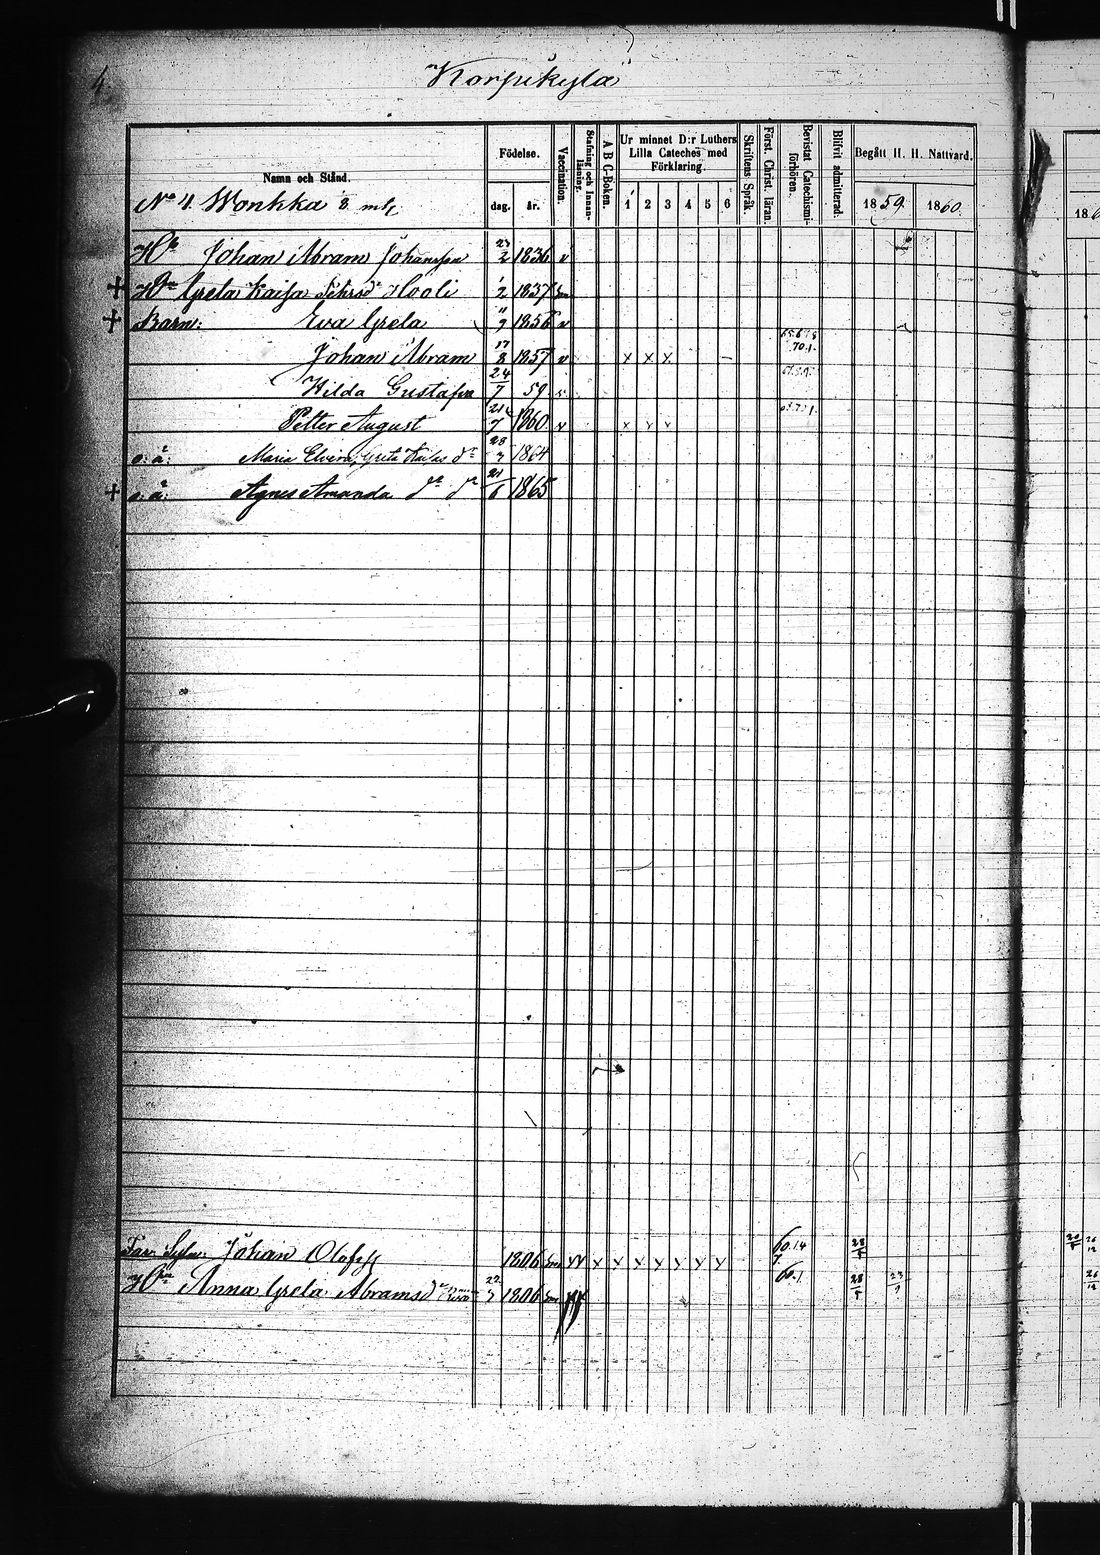 4.
Korpikylä
Namn och Stånd.
Födelse.
dag.
år.
Vaccination.
Stafning och Innanläsning.
ABC-Boken.
Ur minnet D:r Luthers Lilla Cateches med Förklaring.
1 2 3 4 5 6
Skriftens Språk.
Först. Christ. läran.
Bevistat Catechismiförhören.
Blifvit admitterad.
Begått H. H. Nattvard.
1859. 1860. 186
No 4. Wonkka 8 mtl
Johan Abram Johansson 23/2 1836 v
Greta Kaisa Hooli 1/2 1837
Barn: Eva Greta 11/9 1856 v
Johan Abram 17/8 1857 v x x x 70.1.
Hilda Gustafva 24/7 59.
Petter August 21/7 1860 v x x x
o: ä: Maria Elvira, Greta Kaisas dr 28/3 1864
o: ä: Agnes Amanda dr dr 21/6 1865
Johan Olofss 1806 x x x x x x x 60.14 7. 28/5
Anna Greta Abramsdr 22/3 1806 60.1 28/5 23/9